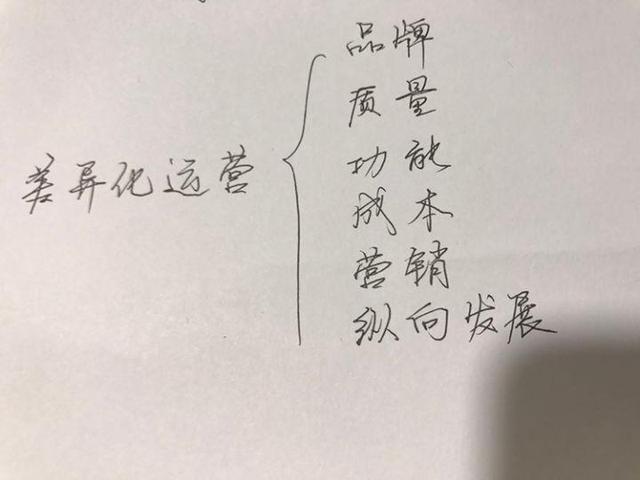 差异化运营
品牌
质量
功能
成本
营销
纵向发展